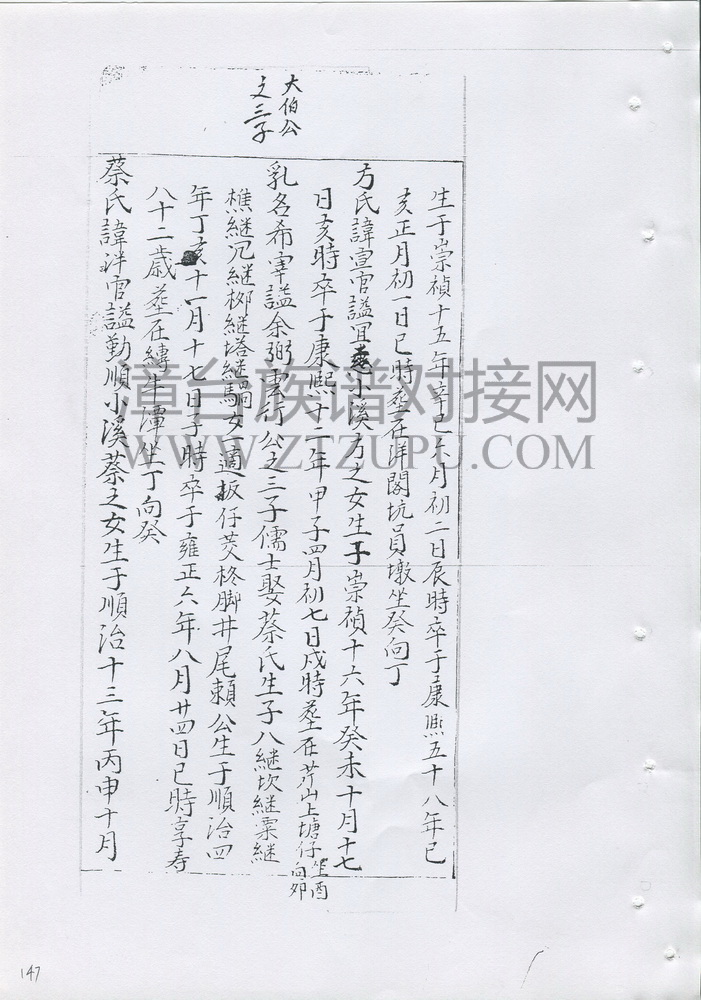 大伯公
文三子
生于崇禎十五年辛巳六月初二日辰時卒于康熙五十八年己
亥正月初一日巳時塟在洋閣坑員墩坐癸向丁
方氏諱宣官謚宜慈小溪方之女生于崇禎十六年癸未十月十七
日亥時卒于康熙十二年甲子四月初七日戍時塟在芹山上塘仔坐酉向卯
乳名希宰謚余弼雲行公之三子儒士娶蔡氏生子八継坎継粟継
樵継冗継梛継塔継騆女一適板仔芠柊脚井尾賴公生于順治四
年丁亥十一月十七日子時卒于雍正六年八月廿四日巳時享寿
八十二歲塟在縛牛潭坐丁向癸
蔡氏諱洋官謚勤順小溪蔡之女生于順治十三年丙申十月
漳台族谱对接网
WWW.ZTZUPU.COM
147